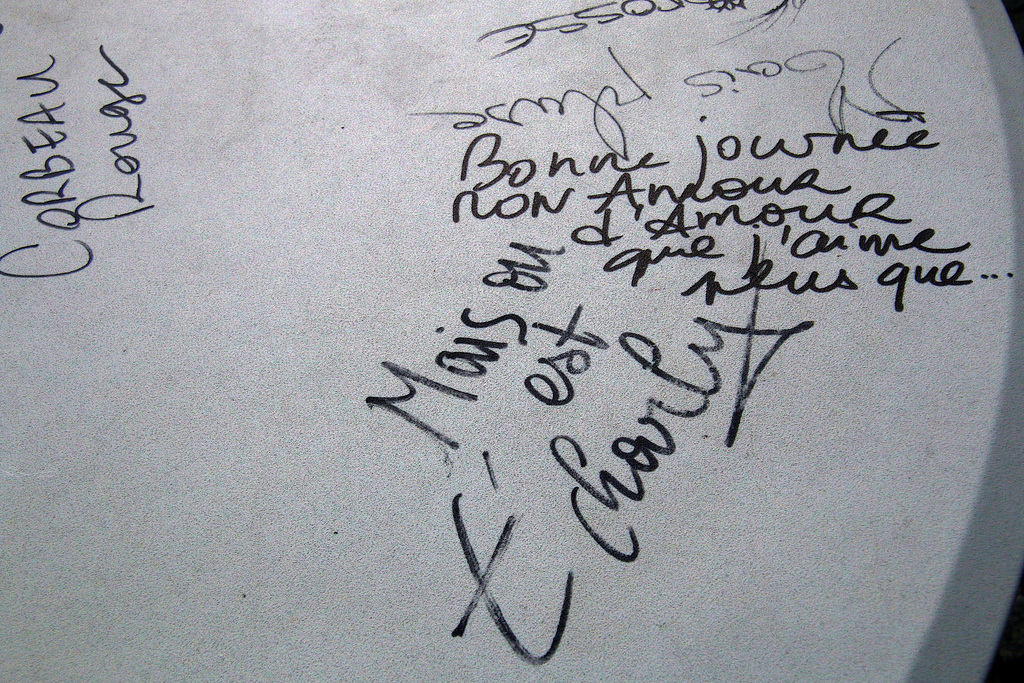 CORBEAU
Rouge
Bonne journée
mon Amour
d'Amour
que j'aime
plus que...
Mais ou
est
Charly